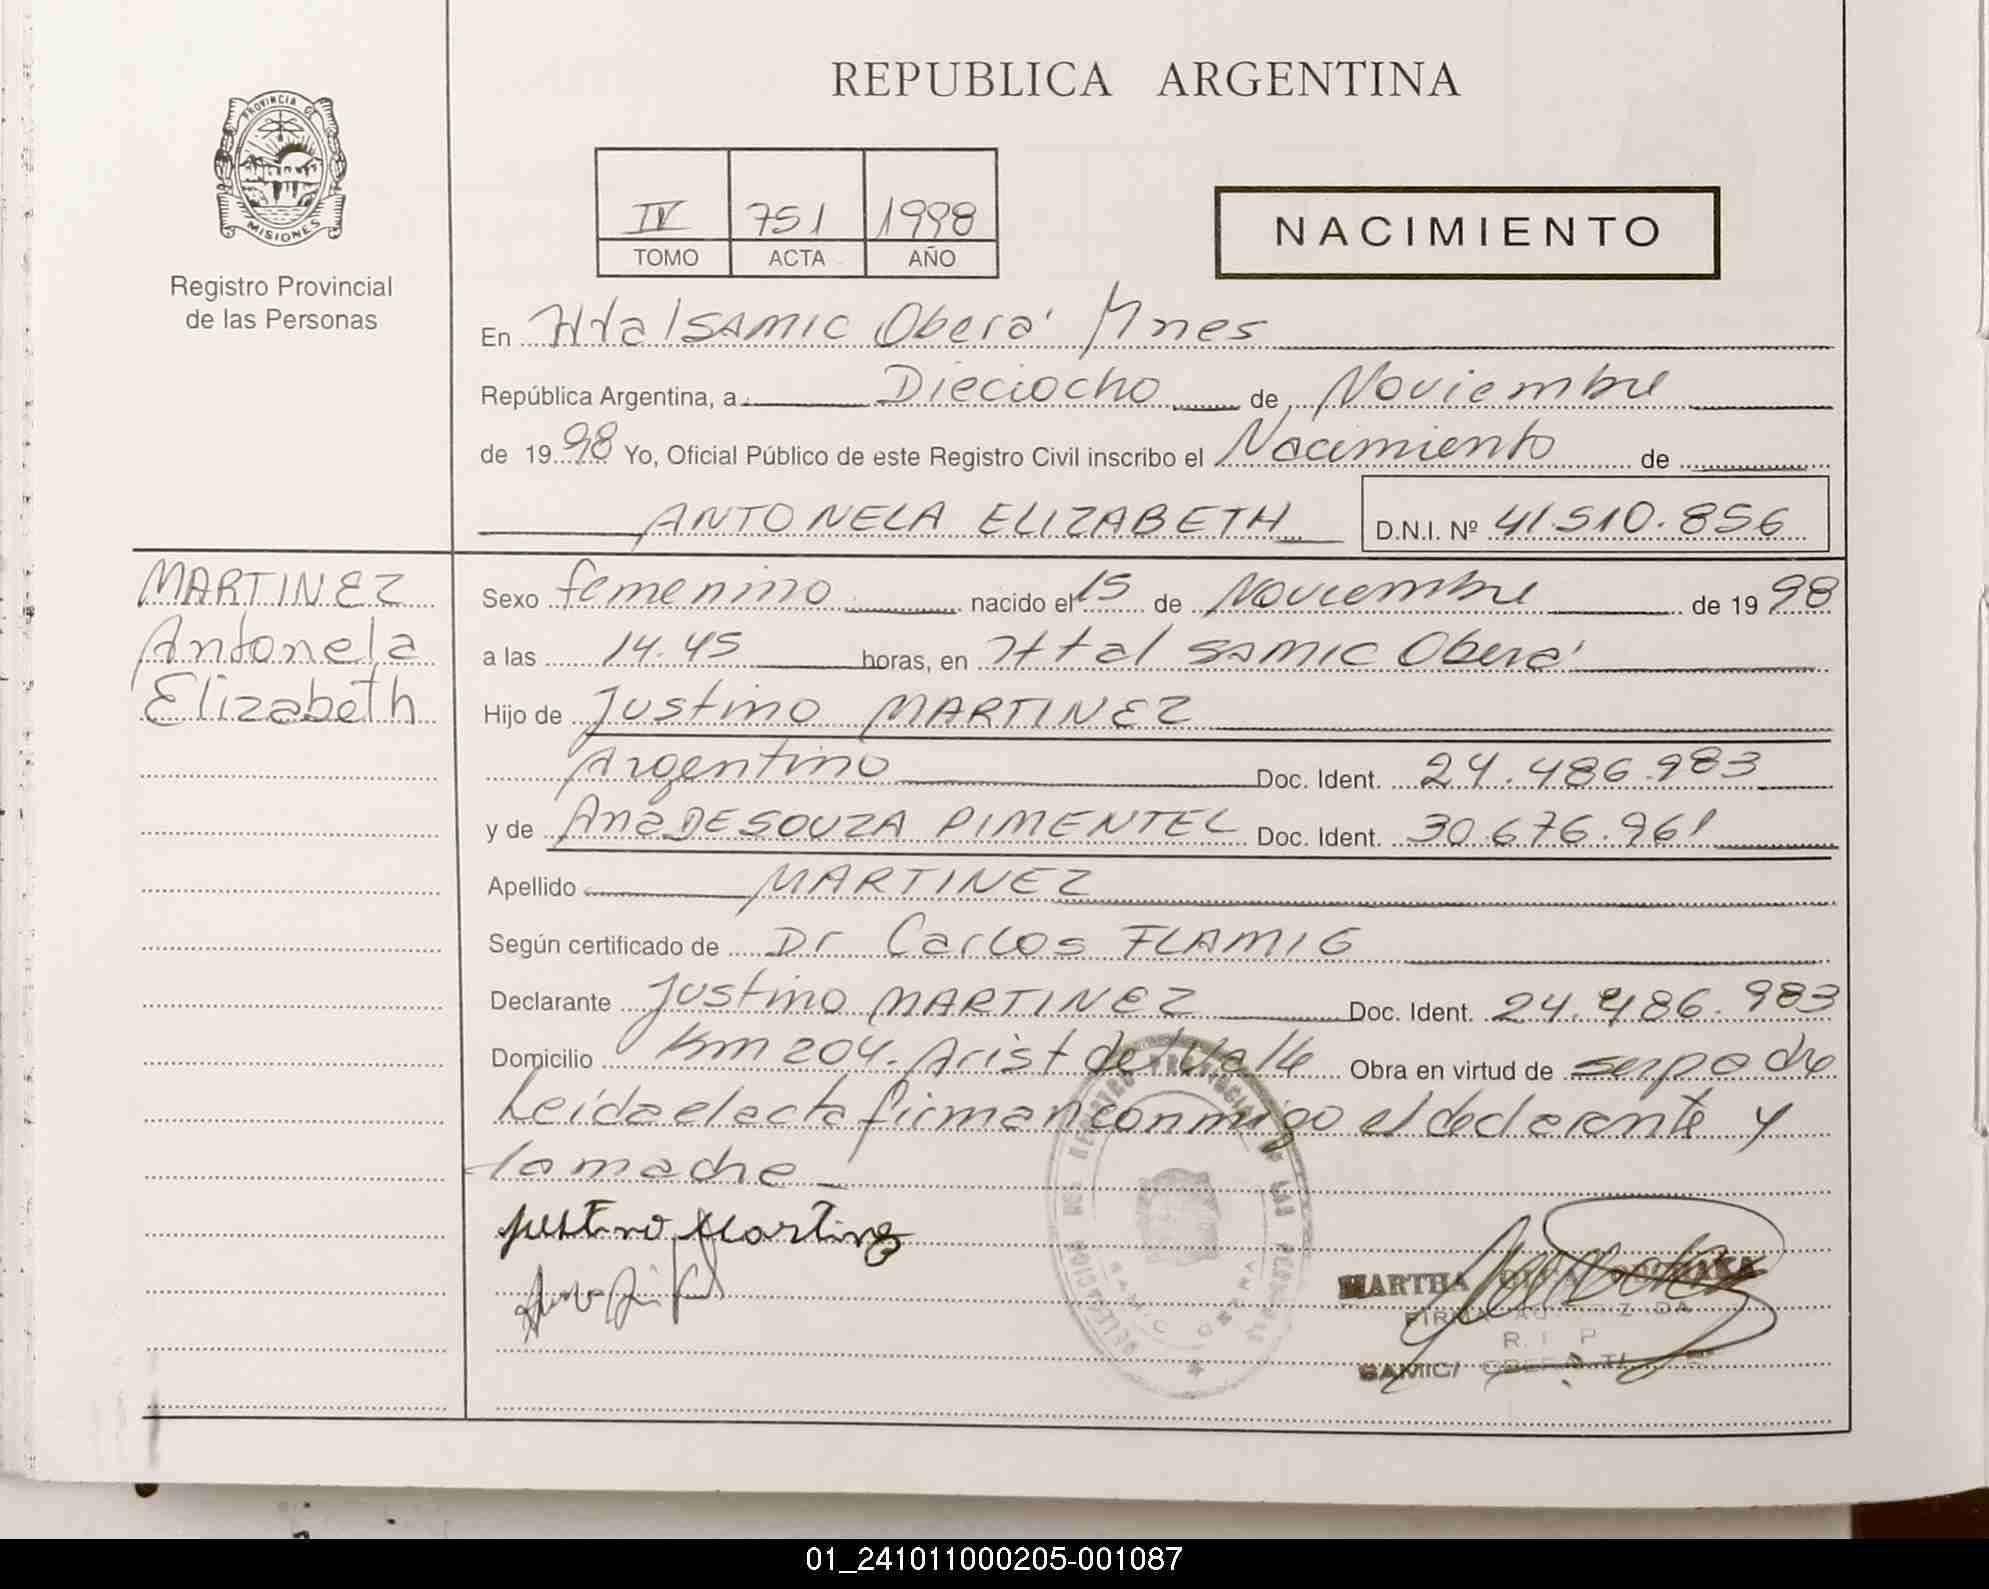 PROVINCIA DE
MISIONES
Registro Provincial
de las Personas
REPUBLICA ARGENTINA
IV 751 1998
TOMO ACTA AÑO
NACIMIENTO
En Htal SAMIC Oberá Mnes
República Argentina, a Dieciocho de Noviembre
de 1998 Yo, Oficial Público de este Registro Civil inscribo el Nacimiento de
ANTONELA ELIZABETH D.N.I. Nº 41.510.856
MARTINEZ
Antonela
Elizabeth
Sexo femenino nacido el 15 de Noviembre de 1998
a las 14.45 horas, en Htal SAMIC Oberá
Hijo de Justino MARTINEZ
Argentino Doc. Ident. 24.486.983
y de Ana DE SOUZA PIMENTEL Doc. Ident. 30.676.961
Apellido MARTINEZ
Según certificado de Dr Carlos FLAMIG
Declarante Justino MARTINEZ Doc. Ident. 24.486.983
Domicilio Km 204. Arist del Valle Obra en virtud de ser padre
Leída el acta firman conmigo el declarante y
la madre
Justino Martinez
REGISTRO PROVINCIAL DE LAS PERSONAS
SAMIC OBERA
MARTHA
FIRMA AUTORIZADA
R. P.
SAMIC/
01_241011000205-001087